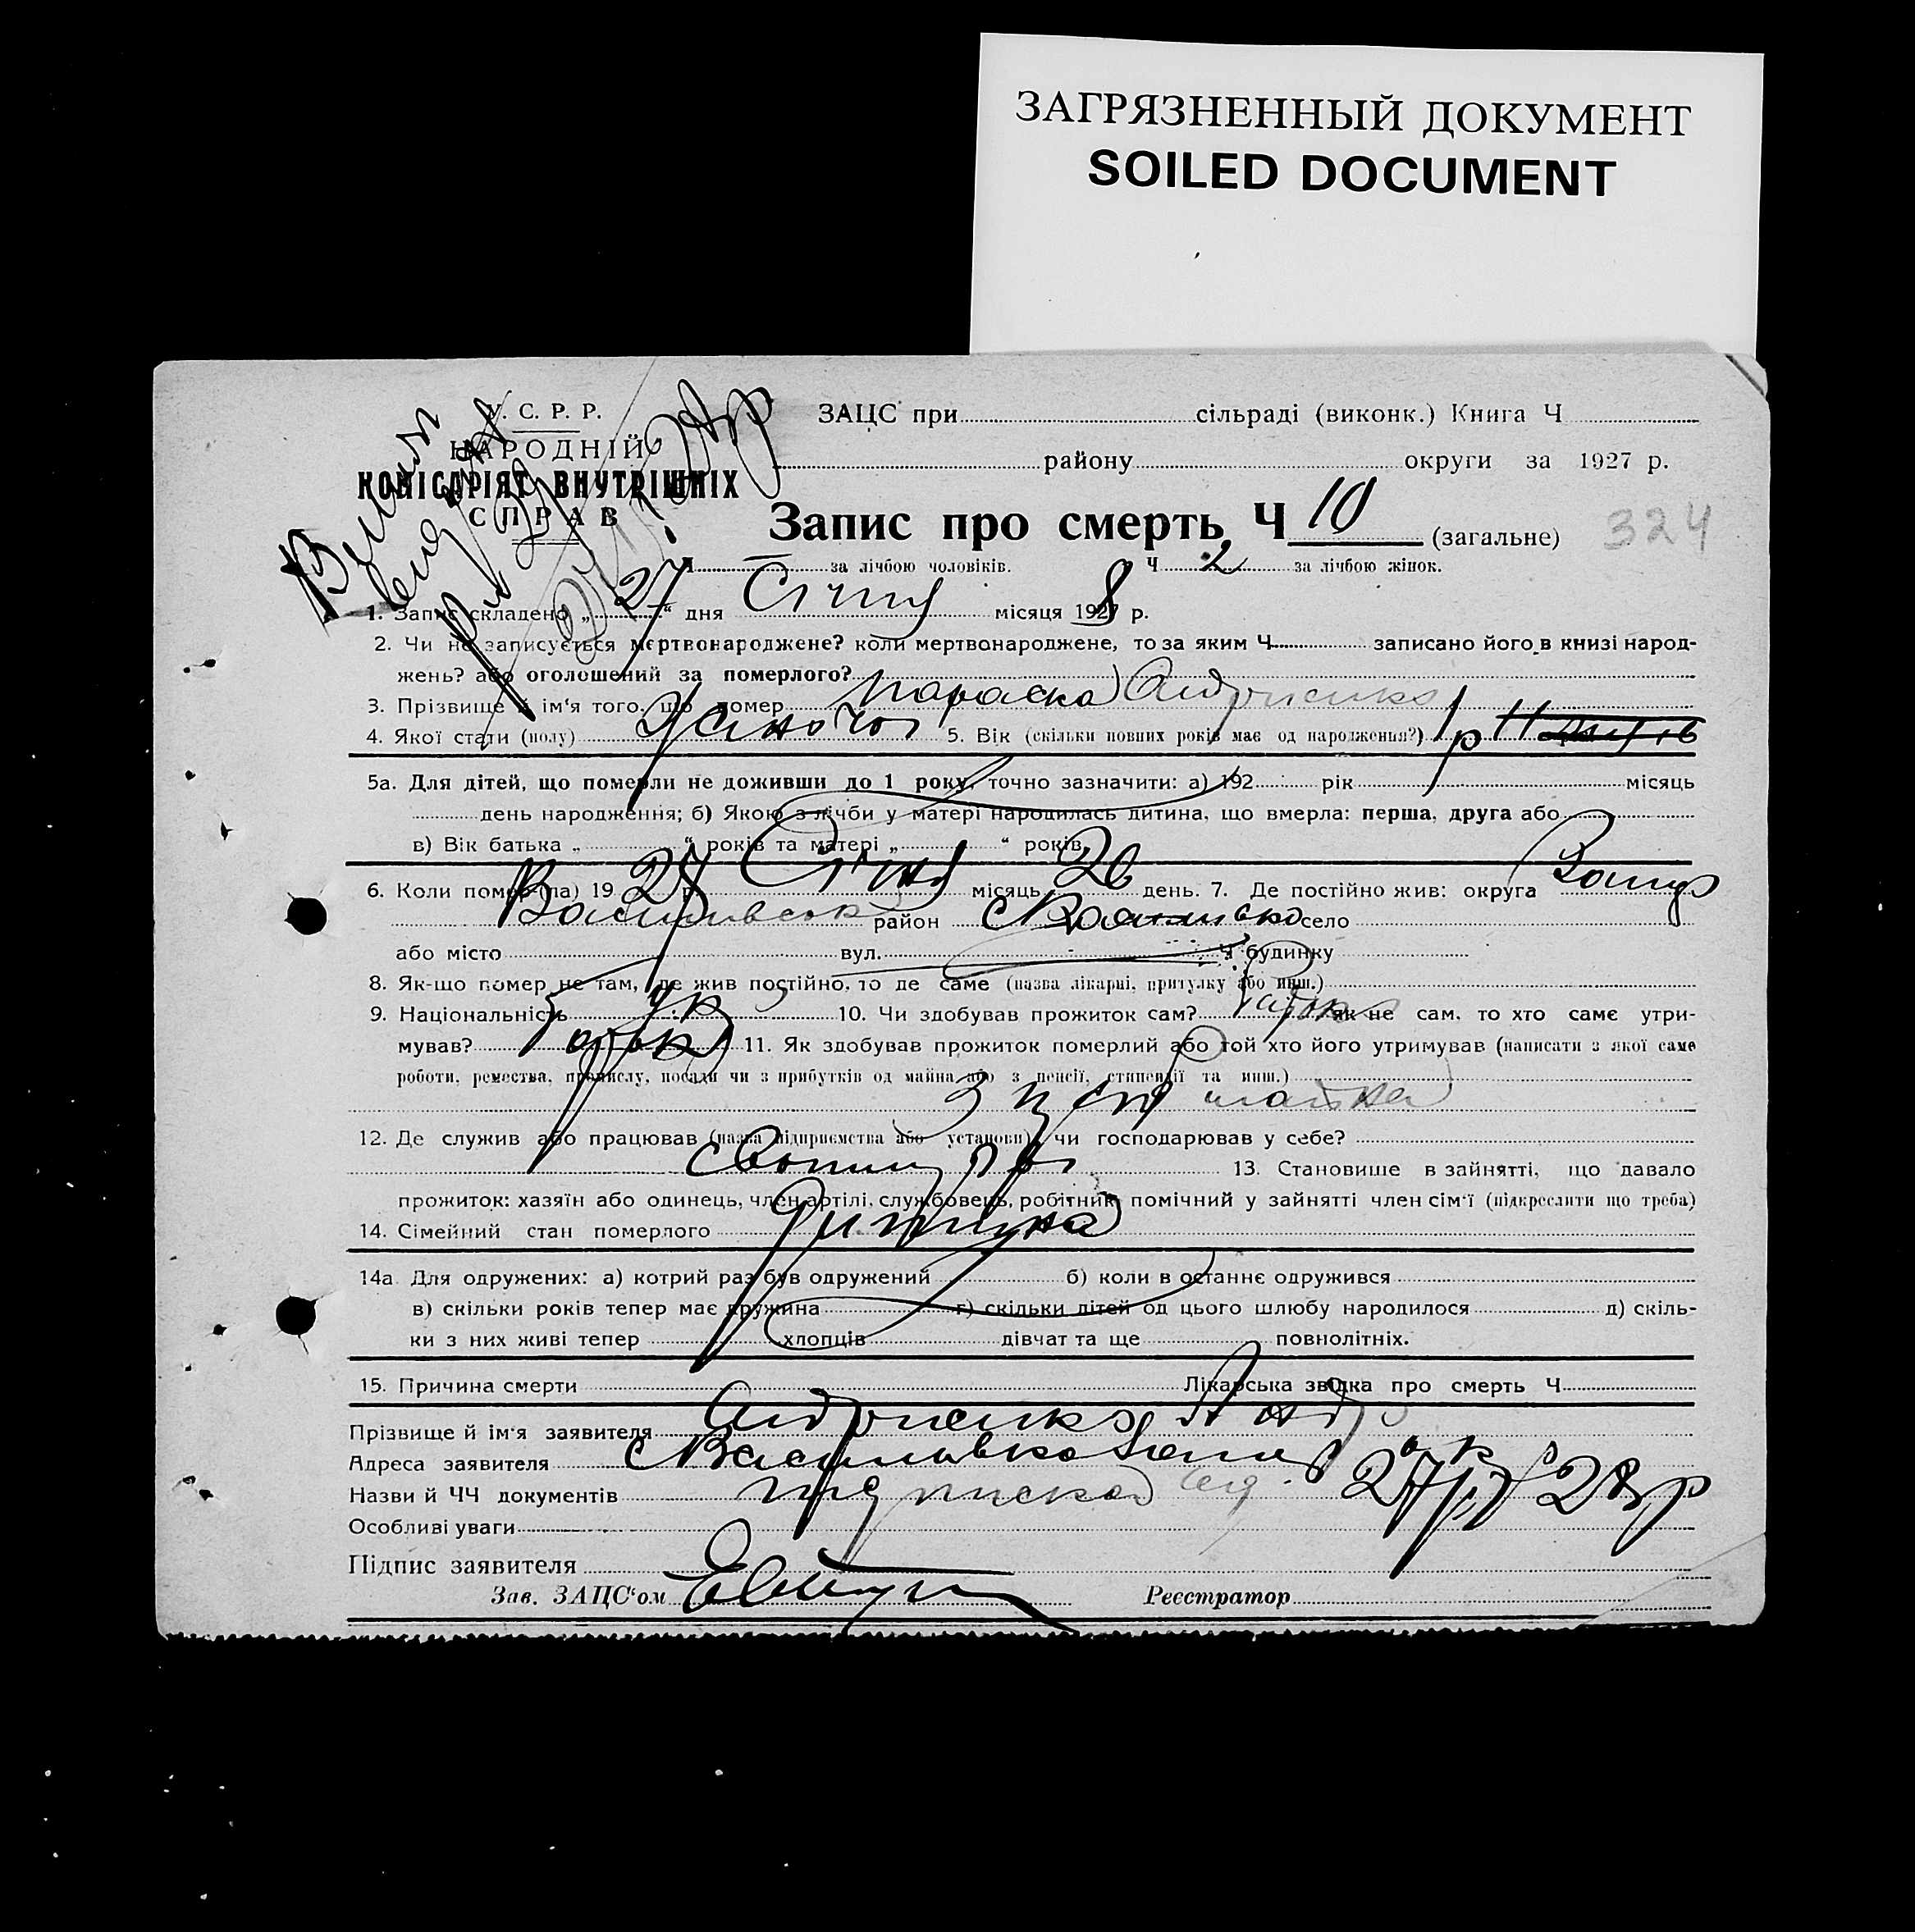 ЗАГРЯЗНЕННЫЙ ДОКУМЕНТ
SOILED DOCUMENT
У. С. Р. Р.
НАРОДНІЙ
КОМІСАРІЯТ ВНУТРІШНІХ
СПРАВ
ЗАЦС при сільраді (виконк.) Книга Ч
району округи за 1927 р.
Запис про смерть Ч 10 (загальне) 324
Ч за лічбою чоловіків. Ч 2 за лічбою жінок.
1. Запис складено „27“ дня Січня місяця 1928 р.
2. Чи не записується мертвонароджене? коли мертвонароджене, то за яким Ч записано його в книзі народ-
жень? або оголошений за померлого?
3. Прізвище й ім'я того, що помер Параска Андриенко
4. Якої стати (полу) Жиноча 5. Вік (скільки повних років має од народження?) 1 р 11
5а. Для дітей, що померли не доживши до 1 року, точно зазначити: а) 192 рік місяць
день народження; б) Якою з лічби у матері народилась дитина, що вмерла: перша, друга або
в) Вік батька „ “ років та матері „ “ років
6. Коли помер (ла) 19 27 р. Січня місяць 26 день. 7. Де постійно жив: округа Запор
Василівськ район с Василівка село
або місто вул. Ч будинку
8. Як-що помер не там, де жив постійно, то де саме (назва лікарні, притулку або инш.)
9. Національність Укр 10. Чи здобував прожиток сам? як не сам, то хто саме утри-
мував? Батьк 11. Як здобував прожиток померлий або той хто його утримував (написати з якої саме
роботи, ремества, промислу, посади чи з прибутків од майна або з пенсії, стипендії та инш.)
12. Де служив або працював (назва підприємства або установи), чи господарював у себе?
13. Становище в зайнятті, що давало
прожиток: хазяїн або одинець, член артілі, службовець, робітник, помічний у зайнятті член сім'ї (підкреслити що треба)
14. Сімейний стан померлого Дитина
14а. Для одружених: а) котрий раз був одружений б) коли в останнє одружився
в) скільки років тепер має дружина г) скільки дітей од цього шлюбу народилося д) скіль-
ки з них живі тепер хлопців дівчат та ще повнолітніх.
15. Причина смерти Лікарська звідка про смерть Ч
Прізвище й ім'я заявителя Андриенко
Адреса заявителя с Василивка Запор
Назви й ЧЧ документів 27/I 28 р
Особливі уваги
Підпис заявителя
Зав. ЗАЦС'ом Реєстратор